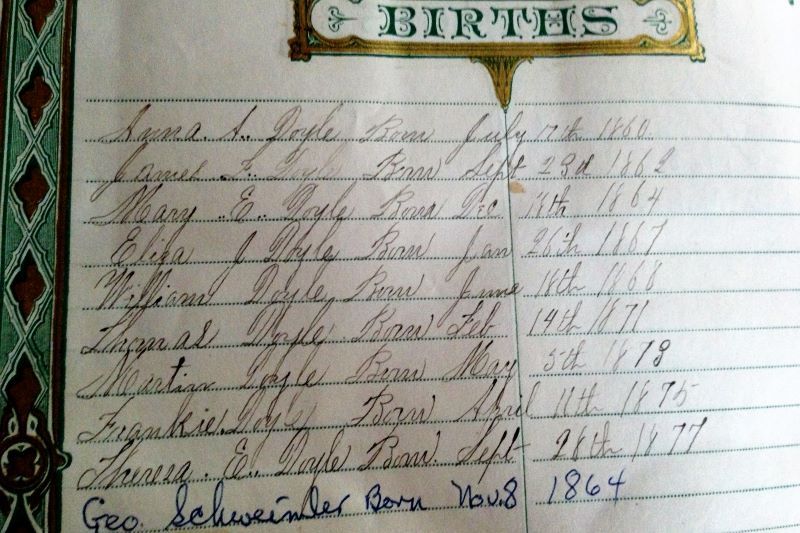 BIRTHS
Anna. A.. Doyle Born July 17th 1860
James F. Doyle Born Sept 23rd 1862
Mary .. E.. Doyle Born Dec 18th 1864
Eliza J Doyle Born Jan 26th 1867
William Doyle Born June 18th 1868
Thomas Doyle Born Feb 14th 1871
Martin Doyle Born May 5th 1873
Frankie. Doyle Born April 11th 1875
Theresa. E.. Doyle Born. Sept 28th 1877
Geo. Schweimler Born Nov. 8 1864